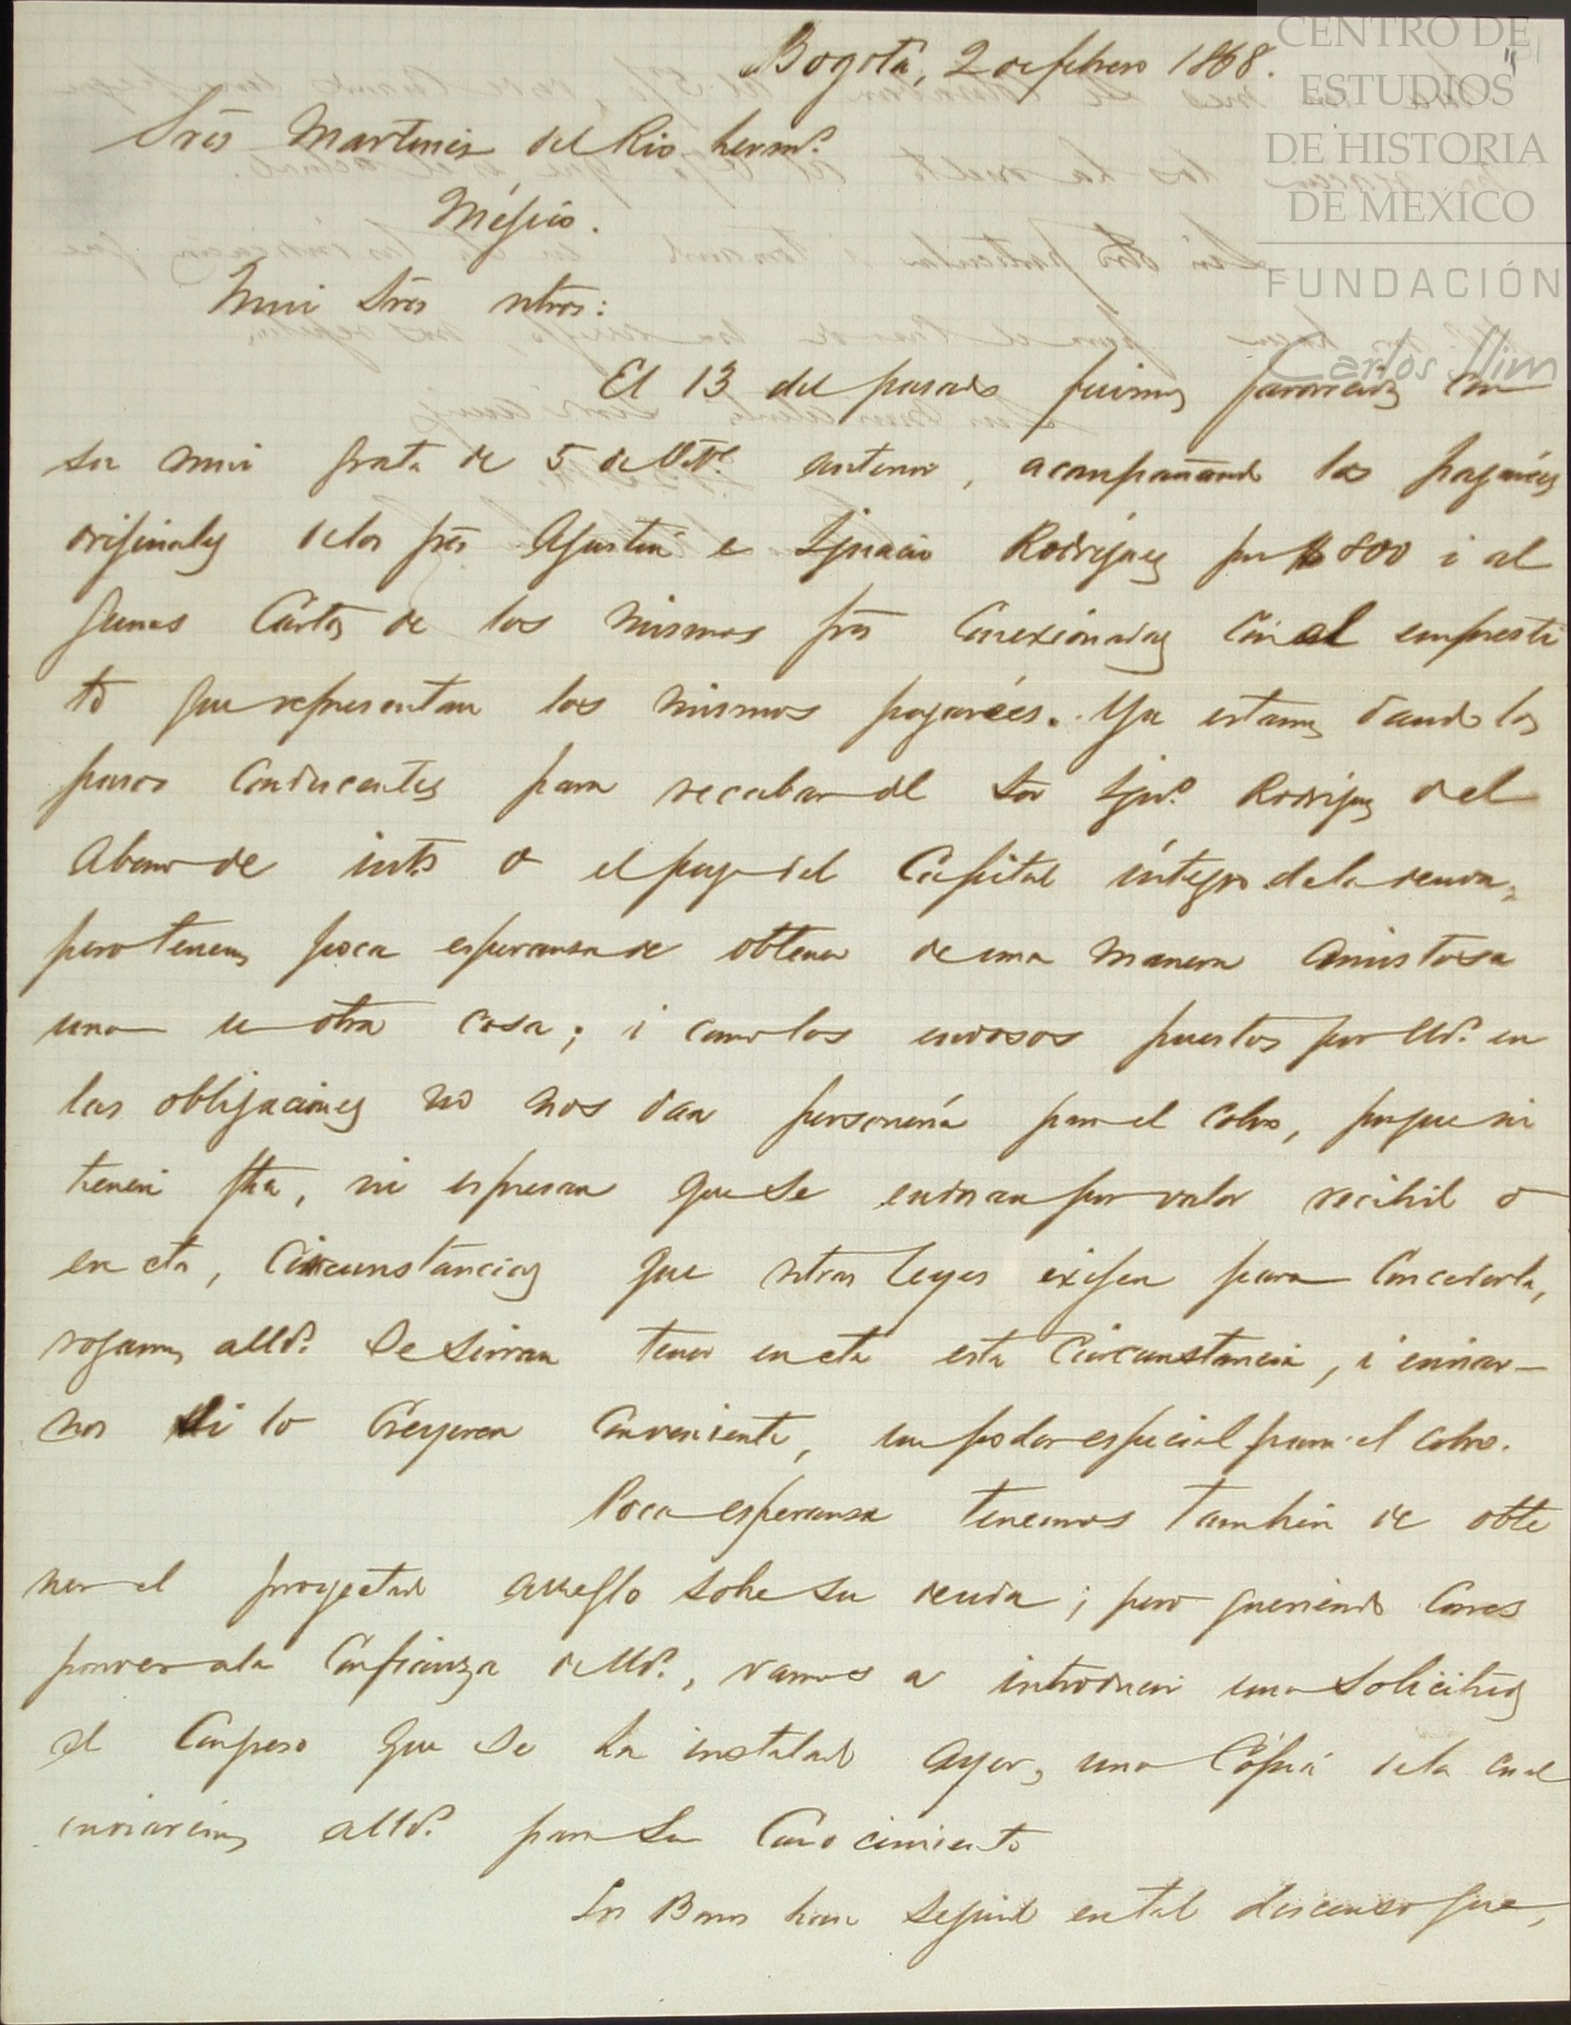 Bogotá, 2 de febrero 1868.
CENTRO DE
ESTUDIOS
DE HISTORIA
DE MEXICO
FUNDACIÓN
Carlos Slim
Sres Martinez del Rio herms
Méjico.
Mui Sres ntros:
El 13 del pasado fuimos favorecidos con
su mui grata de 5 de anterior, acompañando los pagarées
orijinales de los sres Agustin e Ignacio Rodríguez por $800 i al
gunas Cartas de los mismos sres Conexionadas con el empresti
to que representan los mismos pagarées. Ya estamos dando los
pasos Conducentes para recabar del Sor Igno Rodríguez del
Abono de ints o el pago del Capital íntegro de la deuda,
pero tenemos poca esperanza de obtener de una manera amistosa
una u otra cosa; i como los endosos puestos por Uds en
las obligaciones no nos dan personería para el cobro, porque ni
tienen fha, ni espresan que se endosan por valor recibido o
en cta, Circunstancias que ntras leyes exijen para Concederla,
rogamos a Uds se sirvan tener en cta esta Circunstancia, i enviar-
nos si lo Creyeren Conveniente, un poder especial para el cobro.
Poca esperanza tenemos tambien de obte
ner el proyectado arreglo sobre su deuda; pero queriendo Corres
ponder a la Confianza de Uds, vamos a introducir una Solicitud
al Congreso que se ha instalado ayer, una Cópia de la cual
enviaremos a Uds para su Conocimiento
Los Bonos han seguido en tal descenso que,